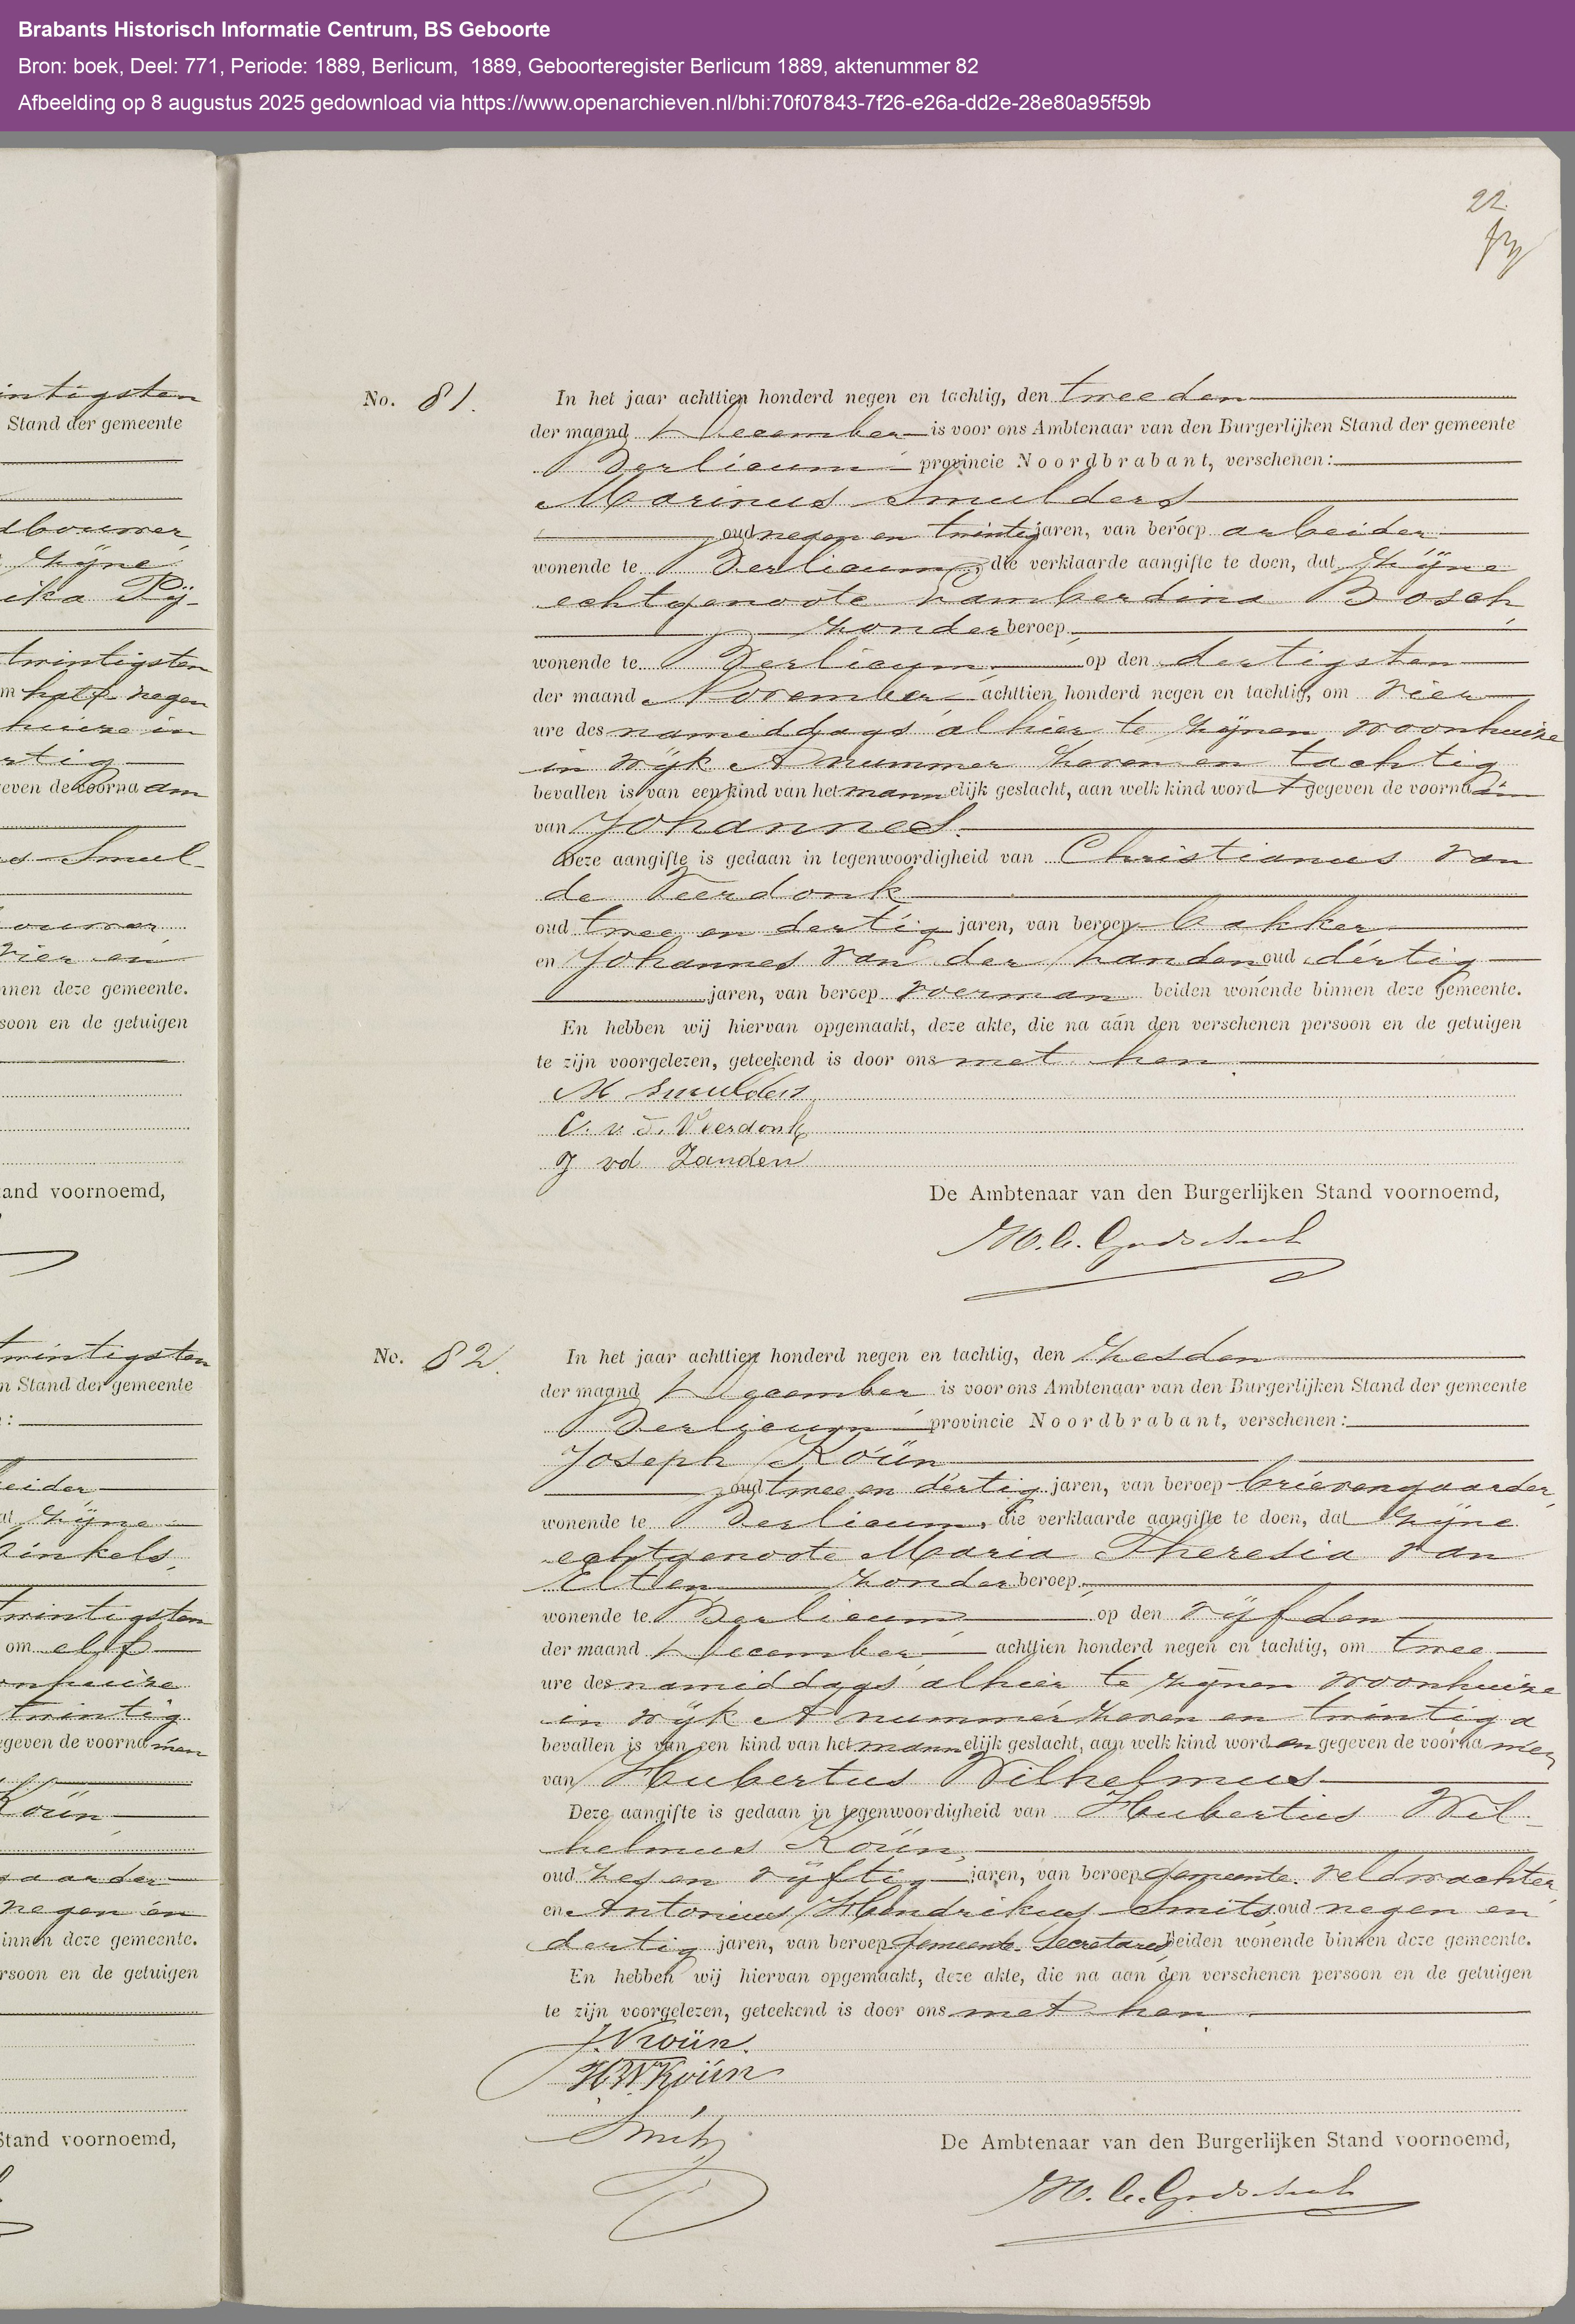 Brabants Historisch Informatie Centrum, BS Geboorte
Bron: boek, Deel: 771, Periode: 1889, Berlicum,  1889, Geboorteregister Berlicum 1889, aktenummer 82
Afbeelding op 8 augustus 2025 gedownload via https://www.openarchieven.nl/bhi:70f07843-7f26-e26a-dd2e-28e80a95f59b
intigsten
Stand der gemeente
dbouwer
zijne
ika Rij-
twintigsten
m half negen
huize in
rtig
even de voornaam
s Smul-
ouwer
vier en
nnen deze gemeente.
soon en de getuigen
tand voornoemd,
twintigsten
n Stand der gemeente
eider
at zijne
Winkels,
twintigsten
om elf
onhuize
twintig
egeven de voornamen
Koün
gaarder
negen en
innen deze gemeente.
rsoon en de getuigen
Stand voornoemd,
22
No. 81.
In het jaar achttien honderd negen en tachtig, den tweeden
der maand December is voor ons Ambtenaar van den Burgerlijken Stand der gemeente
Berlicum provincie Noordbrabant, verschenen:
Marinus Smulders
oud negen en twintig jaren, van beroep arbeider
wonende te Berlicum, die verklaarde aangifte te doen, dat zijne
echtgenoote Lamberdina Bosch,
zonder beroep,
wonende te Berlicum op den dertigsten
der maand November achttien honderd negen en tachtig, om vier
ure des namiddags alhier te zijnen woonhuize
in wijk A nummer zeven en tachtig
bevallen is van een kind van het mannelijk geslacht, aan welk kind wordt gegeven de voornaam
van Johannes.
Deze aangifte is gedaan in tegenwoordigheid van Christianus van
de Veerdonk
oud twee en dertig jaren, van beroep bakker
en Johannes van der Zanden oud dertig
jaren, van beroep voerman beiden wonende binnen deze gemeente.
En hebben wij hiervan opgemaakt, deze akte, die na aan den verschenen persoon en de getuigen
te zijn voorgelezen, geteekend is door ons met hen.
M Smulders
C. v. d. Veerdonk
J vd Zanden
De Ambtenaar van den Burgerlijken Stand voornoemd,
No. 82.
In het jaar achttien honderd negen en tachtig, den zesden
der maand December is voor ons Ambtenaar van den Burgerlijken Stand der gemeente
Berlicum provincie Noordbrabant, verschenen:
Joseph Koün
oud twee en dertig jaren, van beroep brievengaarder,
wonende te Berlicum, die verklaarde aangifte te doen, dat zijne
echtgenoote Maria Theresia van
Elten zonder beroep,
wonende te Berlicum op den vijfden
der maand December achttien honderd negen en tachtig, om twee
ure des namiddags alhier te zijnen woonhuize
in wijk A nummer zeven en twintig a
bevallen is van een kind van het mannelijk geslacht, aan welk kind worden gegeven de voornamen
van Hubertus Wilhelmus
Deze aangifte is gedaan in tegenwoordigheid van Hubertus Wil-
helmus Koün,
oud zes en vijftig jaren, van beroep gemeente veldwachter,
en Antonius Hendrikus Smits, oud negen en
dertig jaren, van beroep gemeente Secretaris, beiden wonende binnen deze gemeente.
En hebben wij hiervan opgemaakt, deze akte, die na aan den verschenen persoon en de getuigen
te zijn voorgelezen, geteekend is door ons met hen.
J. Koün.
H.W. Koün
Smits
De Ambtenaar van den Burgerlijken Stand voornoemd,